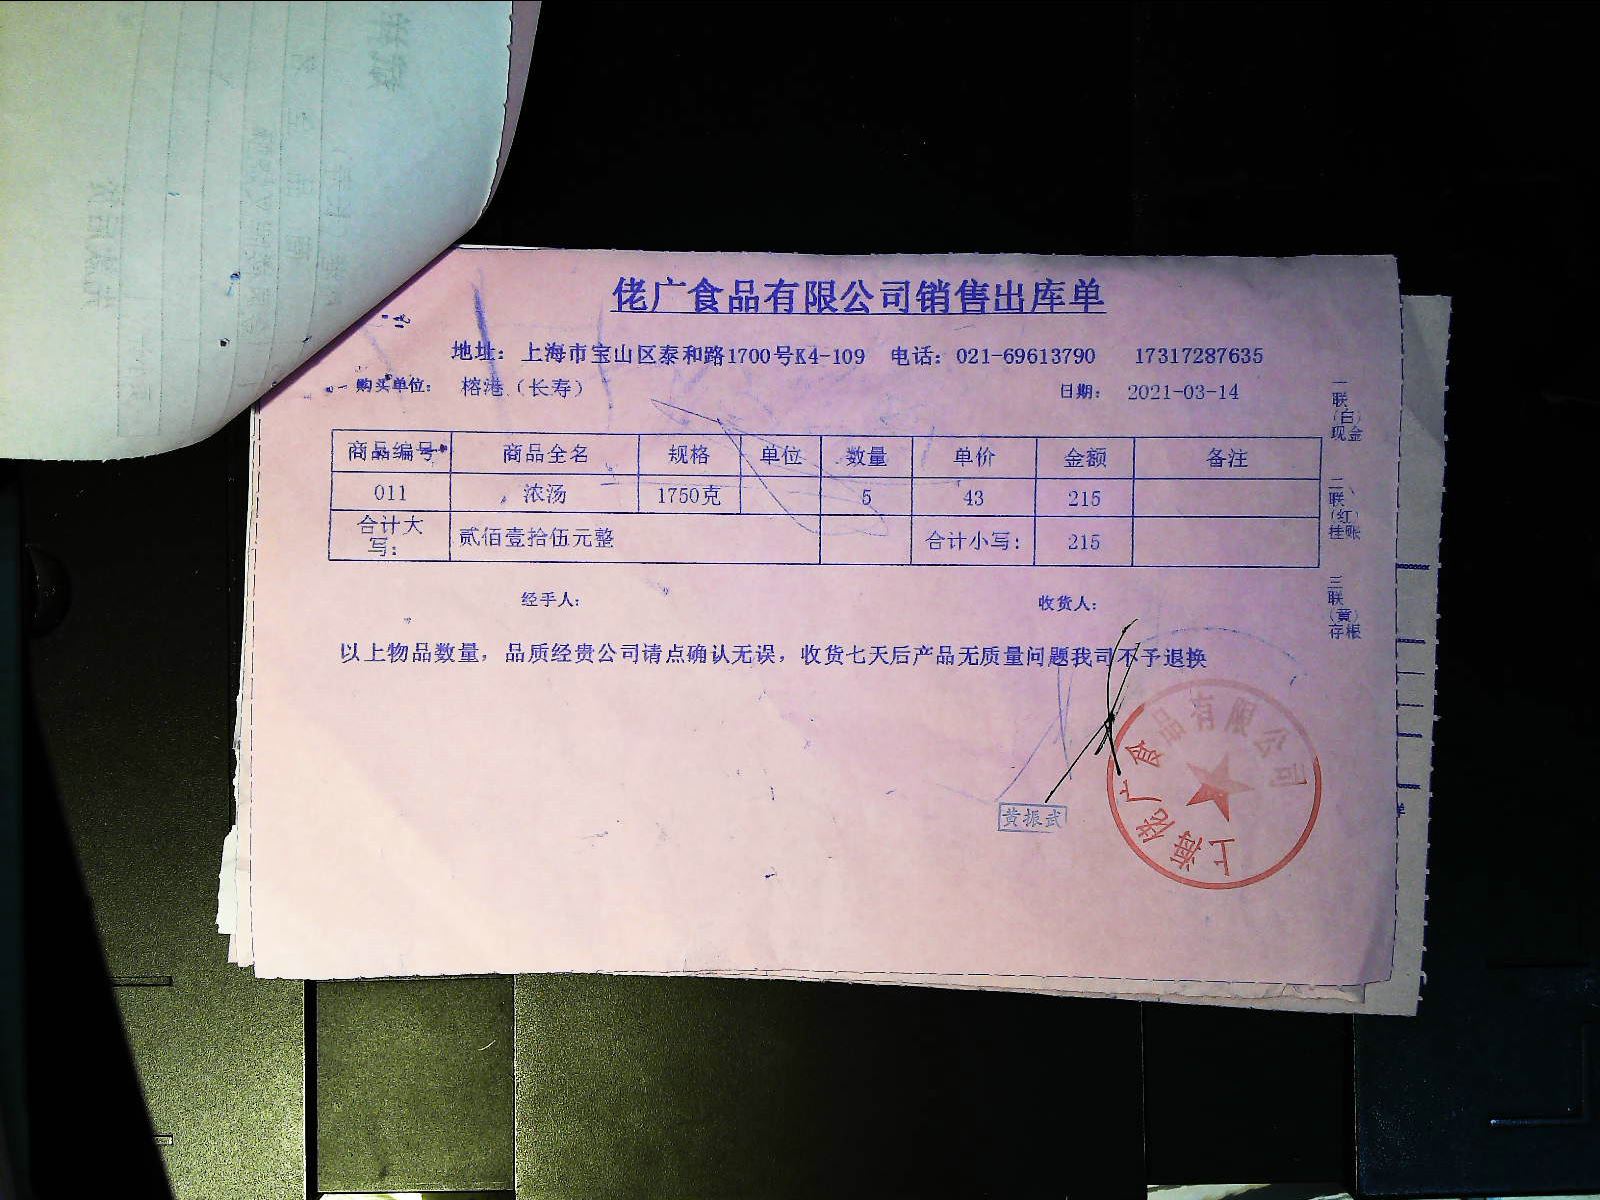 佬广食品有限公司销售出库单
地址：上海市宝山区泰和路1700号K4-109 电话：021-69613790 17317287635
购买单位： 榕港（长寿） 日期： 2021-03-14
商品编号 商品全名 规格 单位 数量 单价 金额 备注
011 浓汤 1750克 5 43 215
合计大写： 贰佰壹拾伍元整 合计小写： 215
经手人： 收货人：
以上物品数量，品质经贵公司请点确认无误，收货七天后产品无质量问题我司不予退换
一联（白）现金
二、联（红）挂账
三联（黄）存根
黄振武
上海佬广食品有限公司